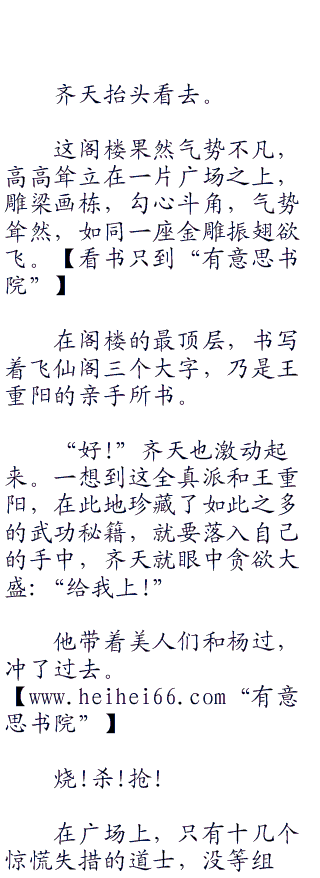 齐天抬头看去。
这阁楼果然气势不凡，
高高耸立在一片广场之上，
雕梁画栋，勾心斗角，气势
耸然，如同一座金雕振翅欲
飞。【看书只到“有意思书
院”】
在阁楼的最顶层，书写
着飞仙阁三个大字，乃是王
重阳的亲手所书。
“好!”齐天也激动起
来。一想到这全真派和王重
阳，在此地珍藏了如此之多
的武功秘籍，就要落入自己
的手中，齐天就眼中贪欲大
盛:“给我上!”
他带着美人们和杨过，
冲了过去。
【www.heihei66.com“有意
思书院”】
烧!杀!抢!
在广场上，只有十几个
惊慌失措的道士，没等组